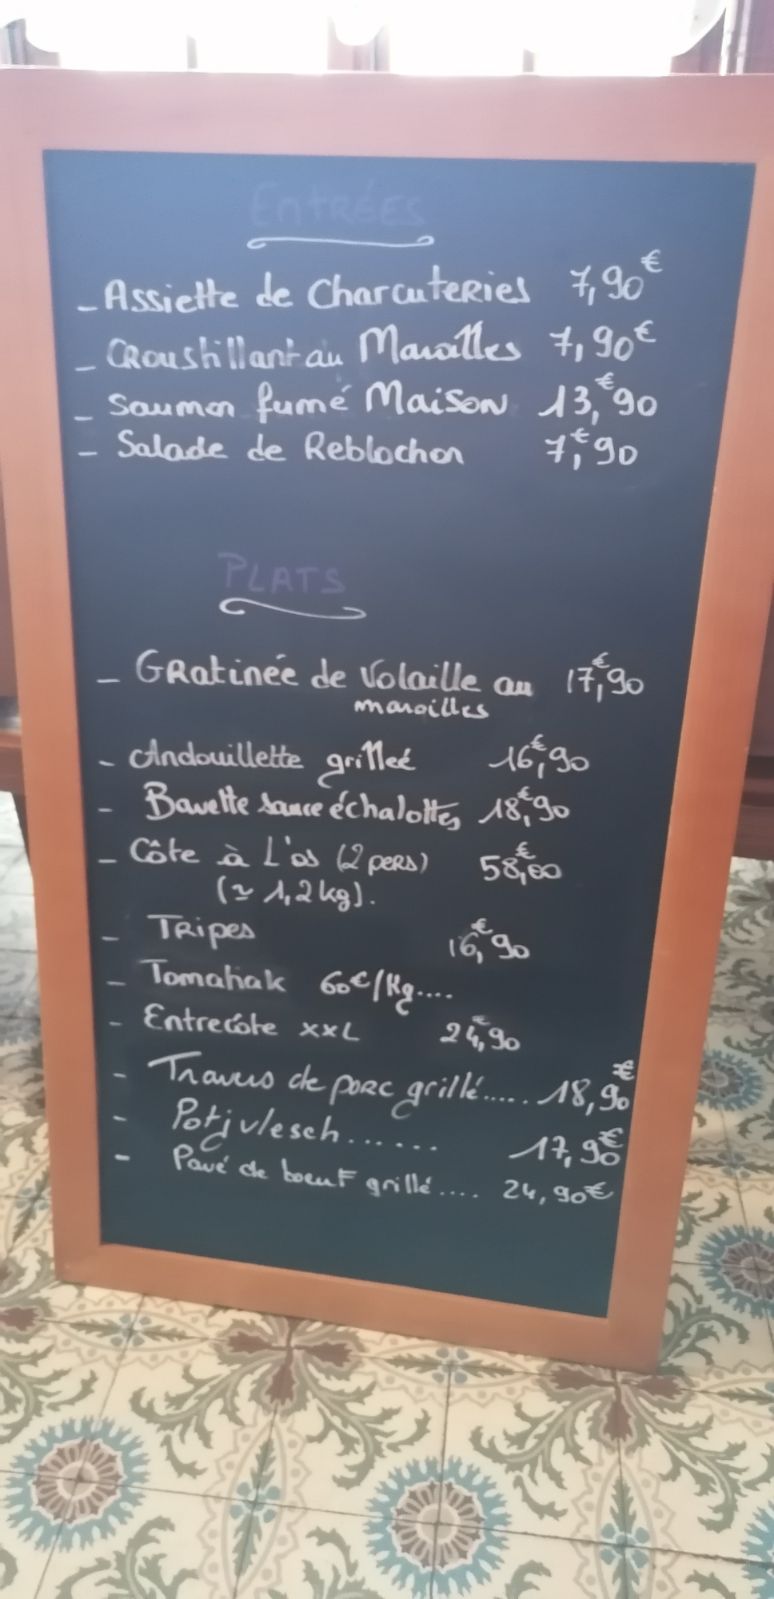 ENTRÉES
- Assiette de Charcuteries 7,90€
- Croustillant au Maroilles 7,90€
- Saumon fumé Maison 13,€90
- Salade de Reblochon 7,€90
PLATS
- GRatinée de Volaille au 17,€90
maroilles
- Andouillette grilleé 16,€90
- Bavette sauce échalottes 18,€90
- Côte à L'os (2 pers) 58,€00
(≃ 1,2 kg).
- TRipes 16,€90
- Tomahak 60€/Kg....
- Entrecôte xxL 24,€90
- Travers de porc grillé...... 18,90€
- Potjvlesch...... 17,90€
- Pavé de boeuf grillé.... 24,90€